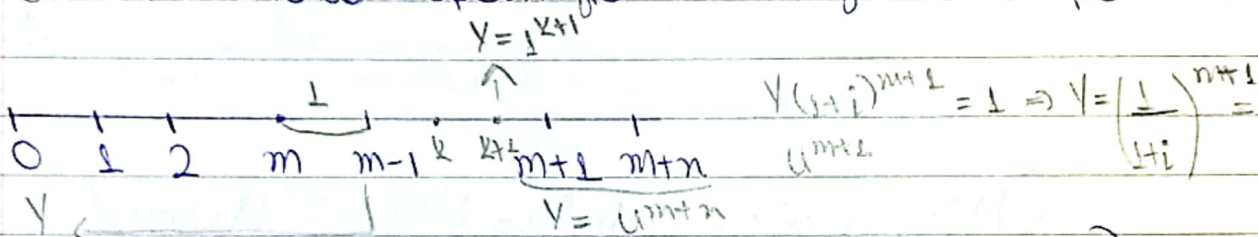 Y = 1^{k+1}
1
Y(1+i)^{m+1} = 1 ⇒ Y = (1/(1+i))^{n+1} =
0 1 2 m m-1 k k+1 m+1 m+n
u^{m+1}
Y
Y = u^{m+n}